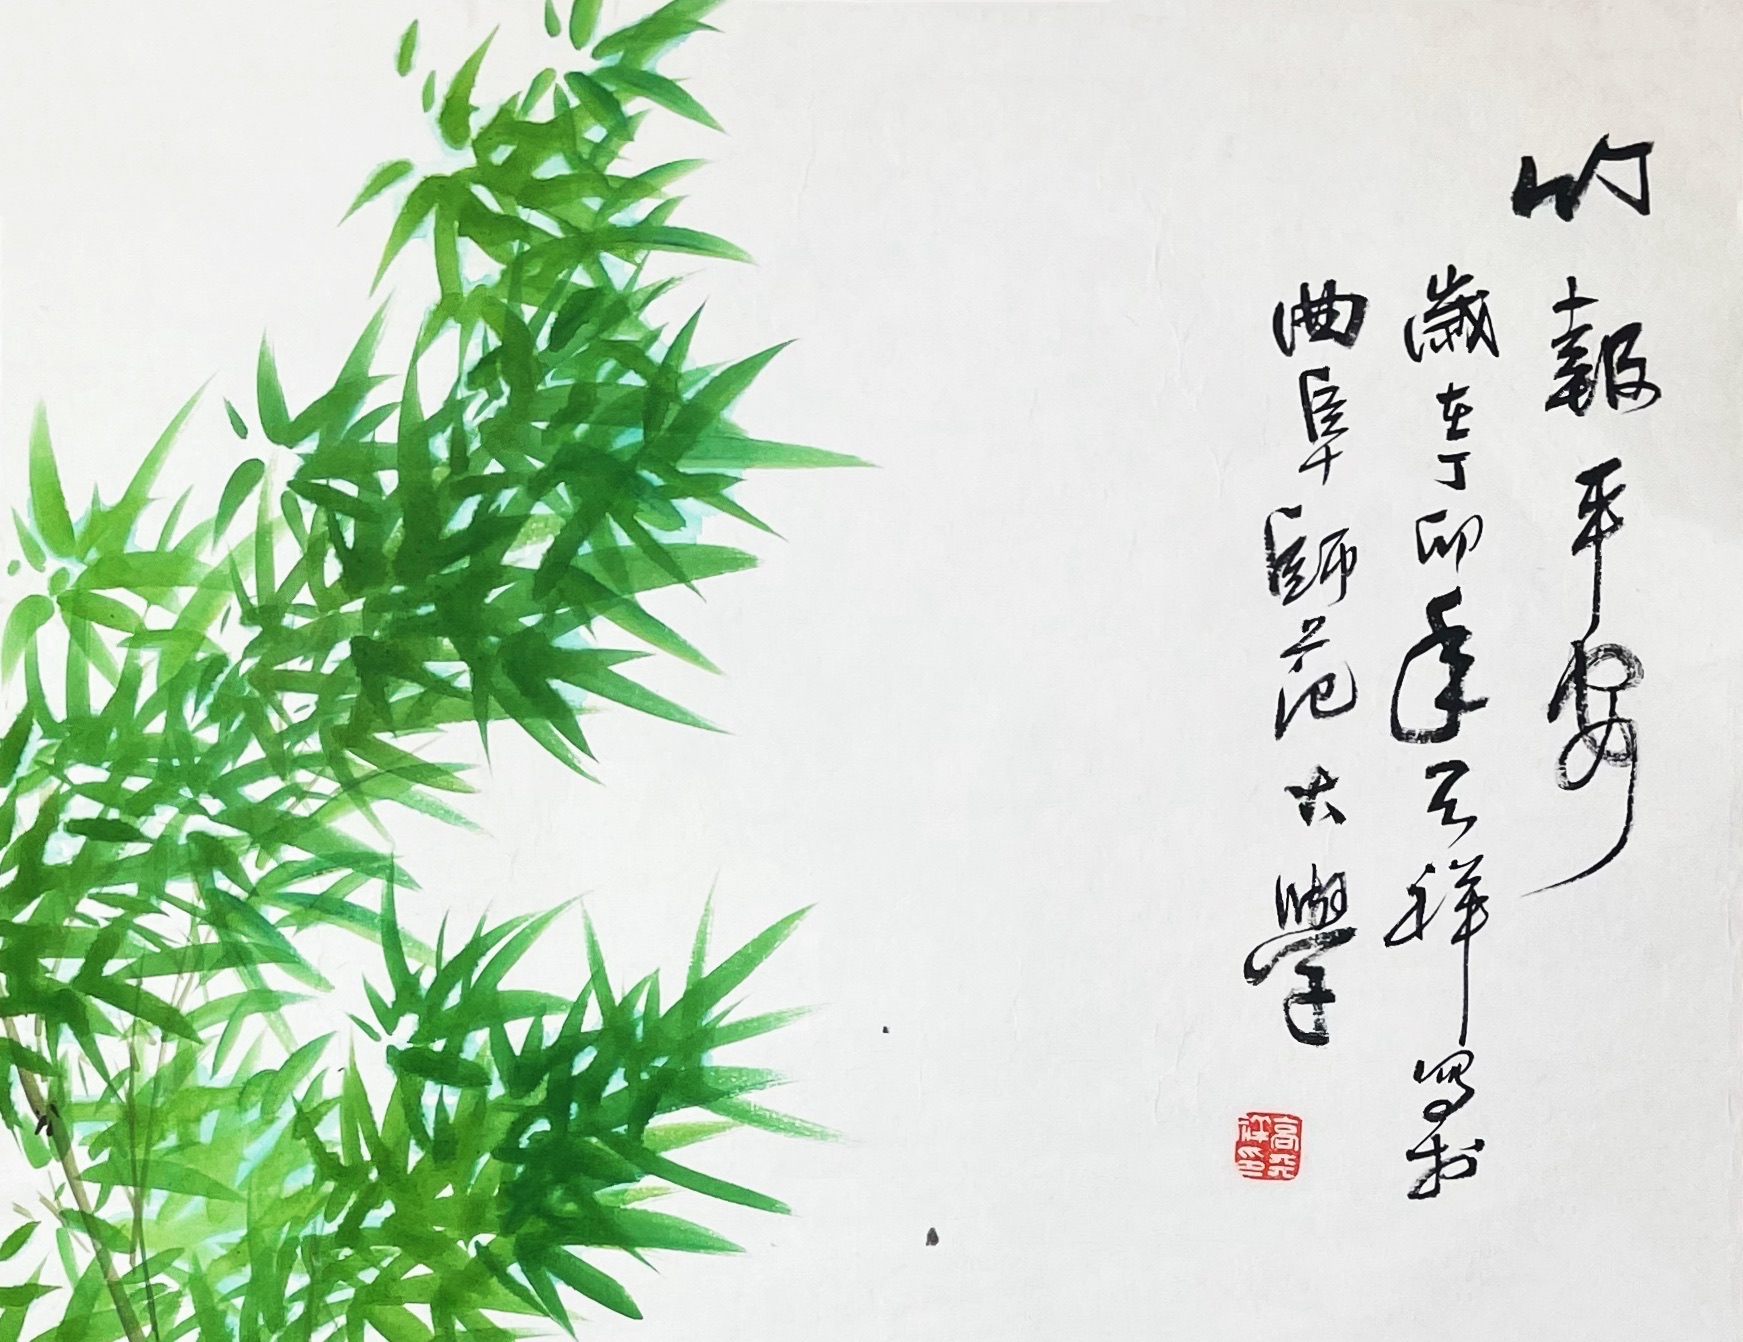 竹報平安
歲在丁卯年天祥寫於
曲阜師范大學
高天祥印